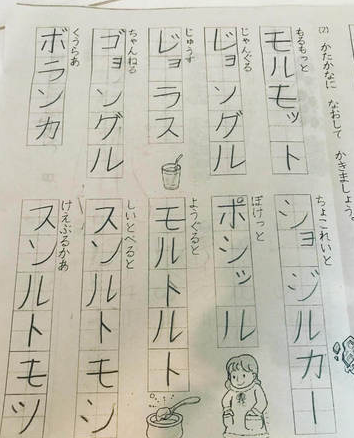 (2) かたかなに なおして かきましょう。
もるもっと
モルモット
じゃんぐる
じョングル
じゅうす
じョラス
ちゃんねる
ゴョングル
くうらあ
ボランカ
ちょこれいと
ショジルカー
ぽけっと
ポシッル
ようぐると
モルトルト
しいとべると
スンルトモシ
けえぶるかあ
スソルトモツ